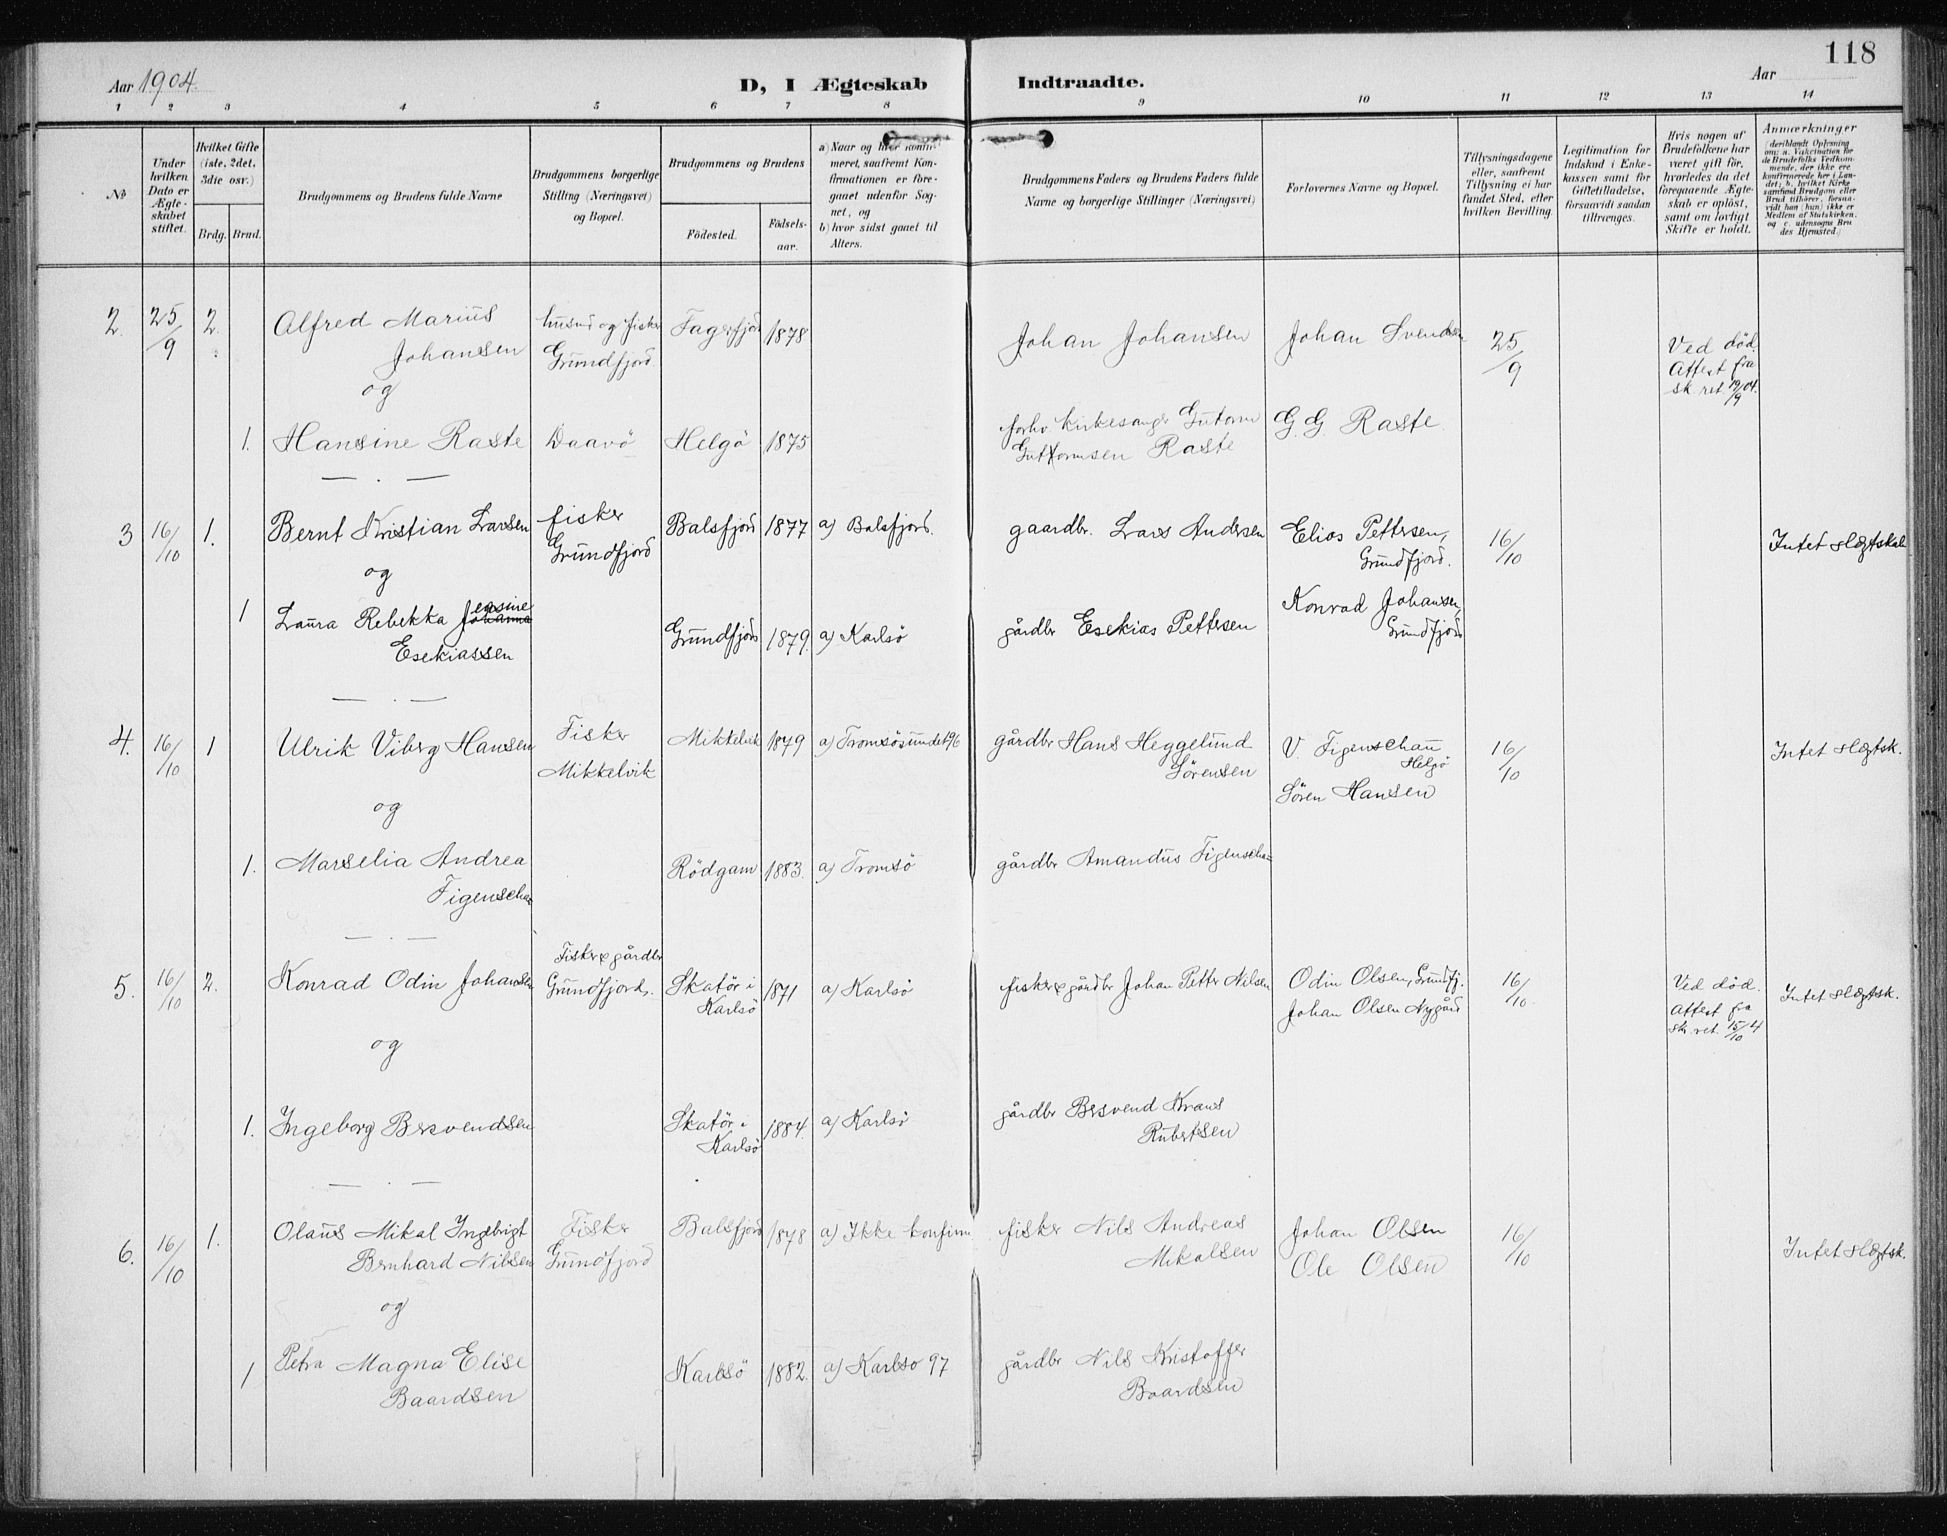 118
Aar 1904.
D, I Ægteskab Indtraadte.
Aar
1 2 3 4 5 6 7 8 9 10 11 12 13 14
No
Under hvilken Dato er Ægteskabet stiftet.
Hvilket Gifte (1ste, 2det, 3die osv.)
Brdg. Brud.
Brudgommens og Brudens fulde Navne
Brudgommens borgerlige Stilling (Næringsvei) og Bopæl.
Brudgommens og Brudens
Fødested.
Fødselsaar.
a) Naar og hvor konfirmeret, saafremt Konfirmationen er foregaaet udenfor Sognet, og
b) hvor sidst gaaet til Alters.
Brudgommens Faders og Brudens Faders fulde
Navne og borgerlige Stillinger (Næringsvei)
Forlovernes Navne og Bopæl.
Tillysningsdagene eller, saafremt Tillysning ei har fundet Sted, efter hvilken Bevilling.
Legitimation for Indskud i Enkekassen samt for Giftetilladelse, forsaavidt saadan tiltrænges.
Hvis nogen af Brudefolkene har været gift før, hvorledes da det foregaaende Ægteskab er opløst, samt om lovligt Skifte er holdt.
Anmærkninger
(deriblandt Oplysning om: a. Vakcination for de Brudefolks Vedkommende, der ikke ere konfirmerede her i Landet; b. hvilket Kirkesamfund Brudgom eller Brud tilhører, forsaavidt han (hun) ikke er Medlem af Statskirken, og c. udensogns Brudes Hjemsted.)
2. 25/9 2. Alfred Marius Johansen husmd og fisker Grundfjord Fagerfjord 1878 Johan Johansen Johan Svendsen 25/9 Ved død. Attest fra sk. ret. 19/9 04.
og
1. Hansine Raste Daavö Helgö 1875 forhv. kirkesanger Gutorm Guttormsen Raste G. G. Raste.
3 16/10 1. Bernt Kristian Larsen fisker Grundfjord Balsfjord 1877 a) Balsfjord. gaardbr. Lars Andersen Elias Pettersen, Grundfjord. 16/10 Intet slægtskab
og
1 Laura Rebekka Johanna Jensine Esekiassen Grundfjord 1879. a) Karlsö gårdbr Esekias Pettersen Konrad Johansen, Grundfjord
4. 16/10 1 Ulrik Viberg Hansen Fisker Mikkelvik Mikkelvik 1879 a) Tromsösundet 96 gårdbr Hans Heggelund Sörensen V. Figenschau Helgö Sören Hansen 16/10 Intet slægtsk.
og
1. Marselia Andrea Figenschau Rödgam 1883. a) Tromsö gårdbr Amandus Figenschau
5. 16/10 2. Konrad Odin Johansen Fisker & gårdbr Grundfjord. Skatör i Karlsö 1871 a) Karlsö fisker & gårdbr Johan Petter Nilsen Odin Olsen, Grundfj. Johan Olsen Nygård 16/10. Ved død. Attest fra sk. ret. 15/10 4 Intet slægtsk.
og
1. Ingeborg Bersvendsen Skatör i Karlsö 1884. a) Karlsö gårdbr Bersvend Krans Rubertsen
6. 16/10 1. Olaus Mikal Ingebrigt Bernhard Nilsen Fisker Grundfjord Balsfjord 1878 a) Ikke konfirm fisker Nils Andreas Mikalsen Johan Olsen Ole Olsen 16/10 Intet slægtsk.
og
1 Petra Magna Elise Baardsen Karlsö 1882. a) Karlso 97 gårdbr Nils Kristoffer Baardsen